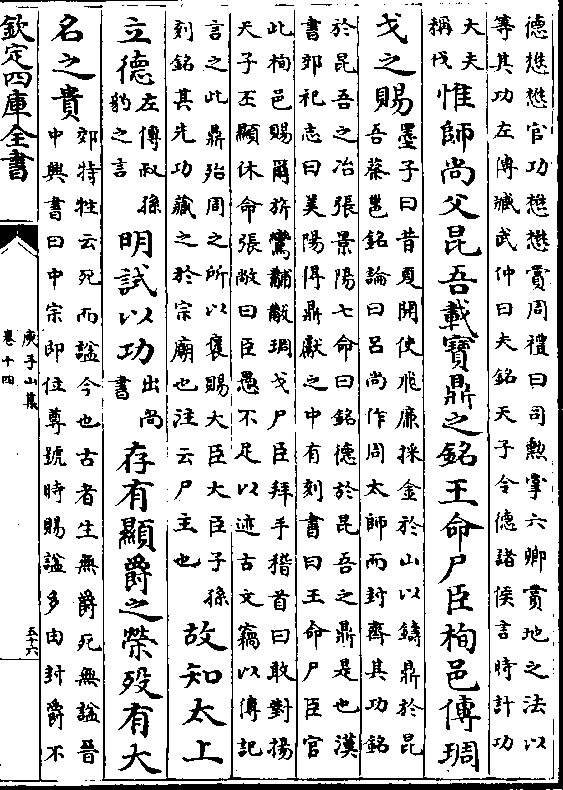 德懋懋官功懋懋賞周禮曰司勲掌六卿賞地之法以
等其功左傳臧武仲曰夫銘天子令德諸侯言時計功
大夫
稱伐
惟師尚父昆吾載寶鼎之銘王命尸臣栒邑傳琱
戈之賜
墨子曰昔夏開使飛廉採金於山以鑄鼎於昆
吾蔡邕銘論曰吕尚作周太師而封齊其功銘
於昆吾之冶張景陽七命曰銘德於昆吾之鼎是也漢
書郊祀志曰美陽得鼎獻之中有刻書曰王命尸臣官
此栒邑賜爾旂鸞黼黻琱戈尸臣拜手稽首曰敢對揚
天子丕顯休命張敞曰臣愚不足以迹古文竊以傳記
言之此鼎殆周之所以褒賜大臣大臣子孫
刻銘其先功藏之於宗廟也注云尸主也
故知太上
立德
左傳叔孫
豹之言
明試以功
出尚
書
存有顯爵之榮殁有大
名之貴
郊特牲云死而諡今也古者生無爵死無諡晉
中興書曰中宗即位尊號時賜諡多由封爵不
欽定四庫全書
庾子山集
卷十四
五十六